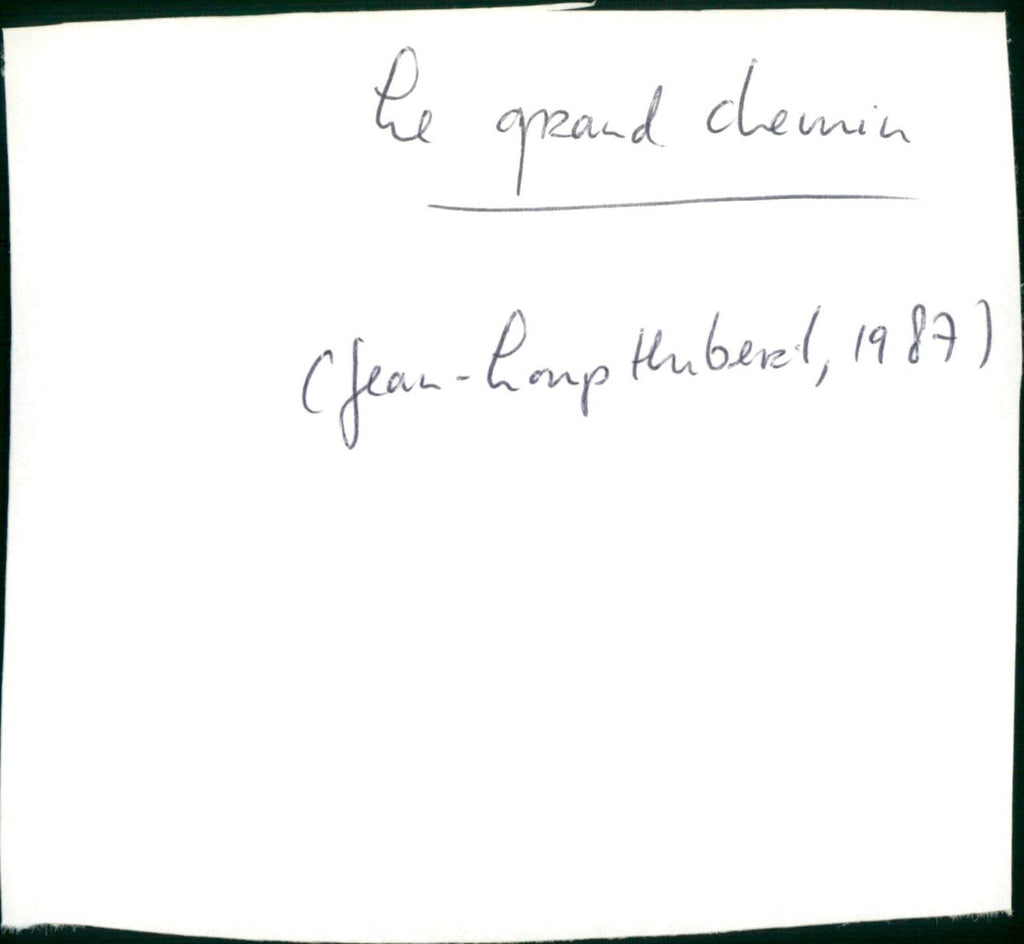 Le grand chemin
(Jean-Loup Hubert, 1987)